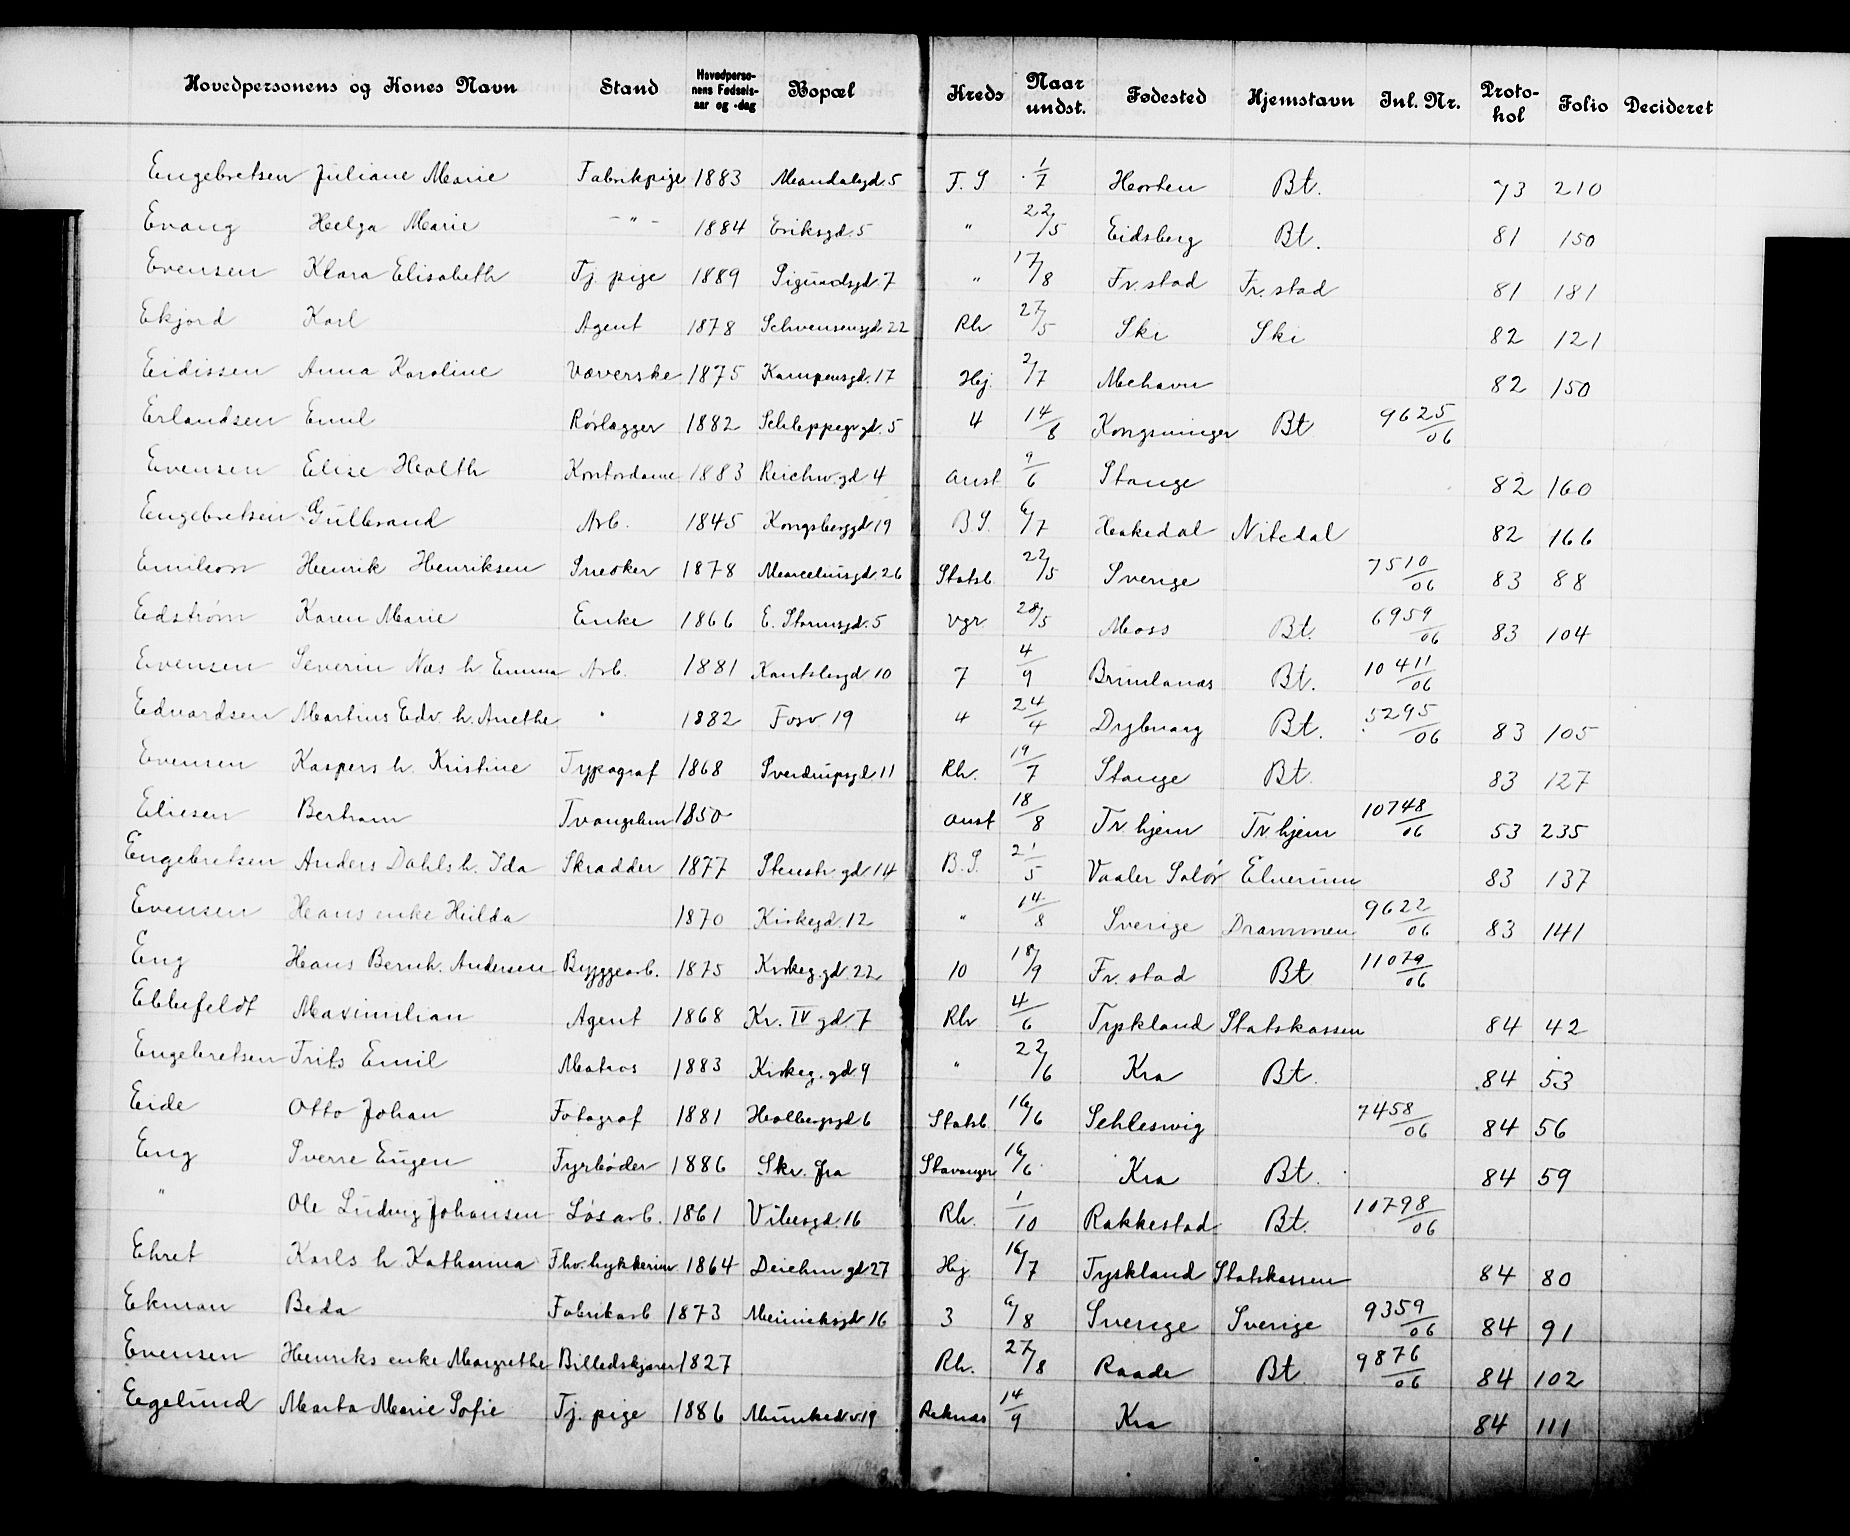 Hovedpersonens og Kones Navn Stand Hovedpersonens Fødselsaar og -dag Bopæl Kreds Naar undst. Fødested Hjemstavn Inl. Nr. Protokol Folio Decideret
Engebretsen Juliane Marie Fabrikpige 1883 Mandalsgd. 5 F. S 1/7 Horten Bt. 73 210
Evang Helga Marie – " – 1884 Eriksgd. 5 " 22/5 Eidsberg Bt. 81 150
Evensen Klara Elisabeth Tj. pige 1889 Sigurdsgd. 7 " 17/8 Fr. stad Fr. stad 81 181
Ekjord Karl Agent 1878 Schwensensgd. 22 Rh 27/5 Ski Ski 82 121
Eidissen Anna Karoline Væverske 1875 Kampensgd. 17 Hj. 2/7 Mehavn 82 150
Erlandsen Emil Rørlægger 1882 Schleppegr gd. 5 4 14/8 Kongsvinger Bt 9625/06
Evensen Elise Holth Kontordame 1883 Reichw. gd 4 anst 9/6 Stange 82 160
Engebretsen Gulbrand Arb. 1845 Kongsberggd 19 B S. 6/7 Hakedal Nitedal 82 166
Emilson Henrik Henriksen Snedker 1878 Marceliusgd. 26 Statsb. 22/5 Sverige 7510/06 83 88
Edstrøm Karen Marie Enke 1866 E. Stormsgd. 5 vgr. 28/5 Moss Bt. 6959/06 83 104
Evensen Severin Næs h. Emma Arb. 1881 Kantslergd 10 7 4/9 Brunlanæs Bt. 10411/06
Edvardsen Martins Edv. h. Anethe " 1882 Fosv 19 4 24/4 Dybvaag Bt. 5295/06 83 105
Evensen Kaspers h. Kristine Typograf 1868 Sverdrupsgd 11 Rh. 19/7 Stange Bt. 83 127
Eliesen Bertram Tvangslem 1850 anst 18/8 Tr. hjem Tr. hjem 10748/06 53 235
Engebretsen Anders Dahls h. Ida Skrædder 1877 Stenstr gd 14 B. S. 21/5 Vaaler Solør Elverum 83 137
Evensen Hans enke Hulda 1870 Kirkegd. 12 " 14/8 Sverige Drammen 9622/06 83 141
Eng Hans Bernh. Andersen Byggearb. 1875 Kirkeg. gd. 22 10 18/9 Fr. stad Bt 11079/06
Ebbefeldt Maximilian Agent 1868 Kr. IV gd 7 Rh 4/6 Tyskland Statskassen 84 42
Engebretsen Frits Emil Matros 1883 Kirkeg. gd 9 " 22/6 Kra Bt. 84 53
Eide Otto Johan Fotograf 1881 Holbergsgd 6 Statsb. 16/6 Schleswig 7458/06 84 56
Eng Sverre Eugen Fyrbøder 1886 Skr. fra Stavanger 16/6 Kra Bt. 84 59
" Ole Ludvig Johansen Løsarb. 1861 Vibesgd. 16 Rh. 1/10 Rakkestad Bt. 10798/06
Ehret Karls h Katharina 1864 Deichm gd 27 Hj 16/7 Tyskland Statskassen 84 80
Ekman Beda Fabrikarb 1873 Meinichsgd 16 3 6/8 Sverige Sverige 9359/06 84 91
Evensen Henriks enke Margrethe Billedskjærer 1827 Rh. 27/8 Raade Bt 9876/06 84 102
Egelund Marta Marie Sofie Tj. pige 1886 Munked. v. 19 Reknæs 14/9 Kra 84 111